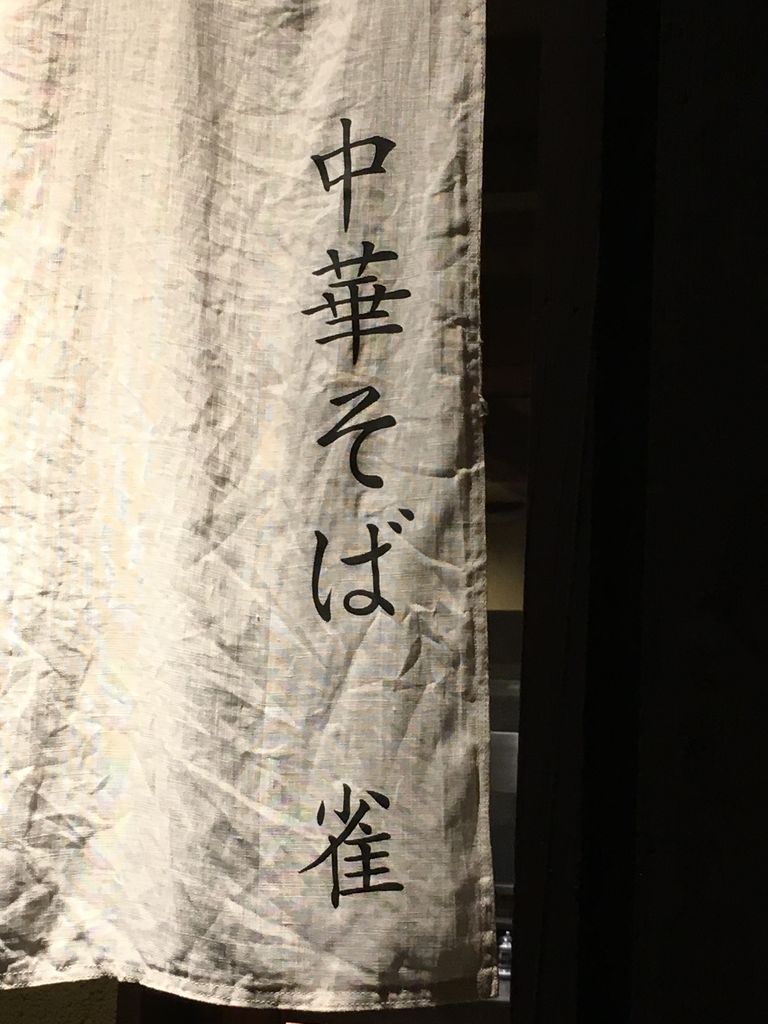 中華そば 雀